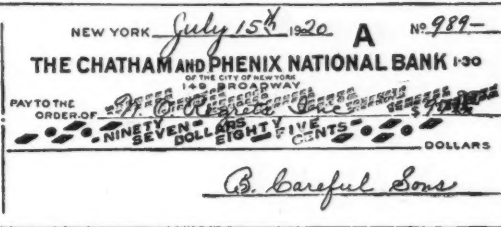 NEW YORK July 15th 1920 A No 989-
THE CHATHAM AND PHENIX NATIONAL BANK 1-30
OF THE CITY OF NEW YORK
149 BROADWAY
PAY TO THE
ORDER OF Inc $97
NINETY SEVEN DOLLARS EIGHTY FIVE CENTS
DOLLARS
B. Careful Sons